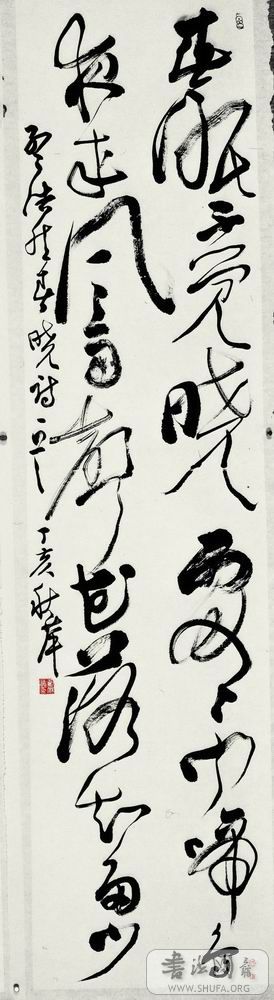 春眠不觉晓處〻闻啼鸟
夜来风雨聲花落知多少
孟浩然春晓诗一首 丁亥秋
書法
WWW.SHUFA.ORG